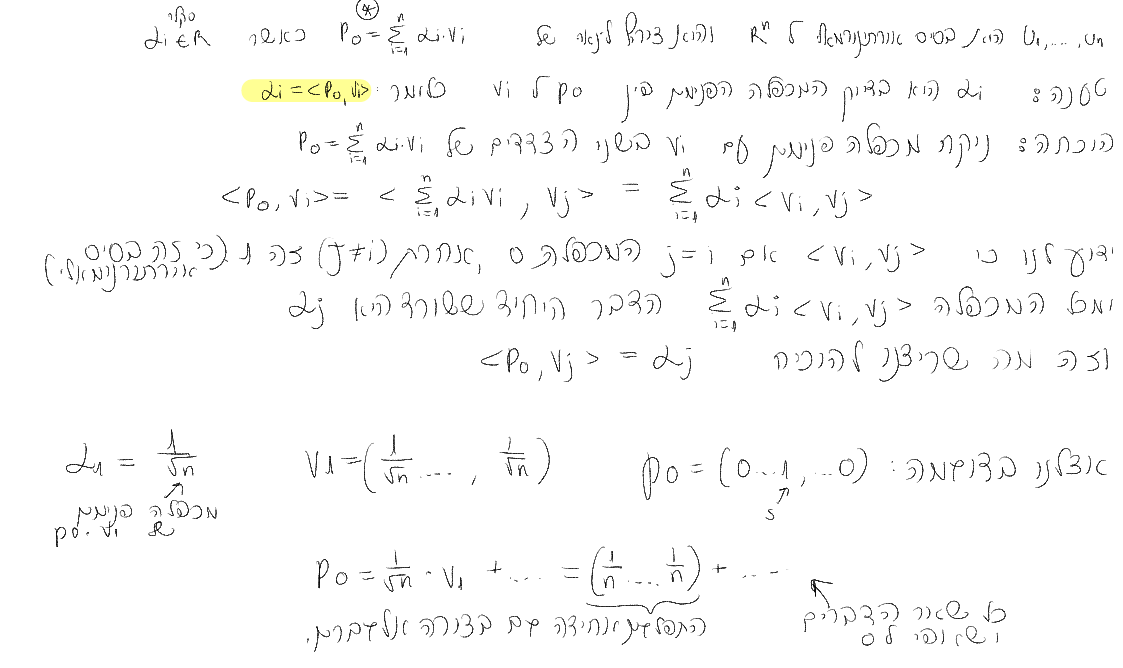 v₁,...,vₙ הוא בסיס אורתונורמאלי ל Rⁿ והוא צירוף לינארי של P₀ = Σᵢ₌₁ⁿ αᵢ·vᵢ ⊛ כאשר αᵢ ∈ R סקלר
טענה: αᵢ הוא בדיוק המכפלה הפנימית בין p₀ ל vᵢ כלומר αᵢ = <P₀, vᵢ>
הוכחה: ניקח מכפלה פנימית עם vᵢ בשני הצדדים של P₀ = Σᵢ₌₁ⁿ αᵢ·vᵢ
<P₀, vᵢ> = < Σᵢ₌₁ⁿ αᵢvᵢ , vⱼ > = Σᵢ₌₁ⁿ αᵢ <vᵢ, vⱼ>
ידוע לנו כי <vᵢ, vⱼ> אם j=i המכפלה 0, אחרת (j≠i) זה 1 (כי זה בסיס אורתונורמאלי)
ומכל המכפלה Σᵢ₌₁ⁿ αᵢ <vᵢ, vⱼ> הדבר היחיד ששורד הוא αⱼ
וזה מה שרצינו להוכיח <P₀, vⱼ> = αⱼ
אצלנו בדוגמה: p₀ = (0...1,...0) v₁ = (1/√n ...., 1/√n) α₁ = 1/√n
↑ s
מכפלה פנימית
של p₀·v₁
P₀ = 1/√n · v₁ + .... = (1/n .... 1/n) + ....
כל שאר הדברים
ושואפי ל 0
התפלגות אחידה גם בצורה אלגברית.